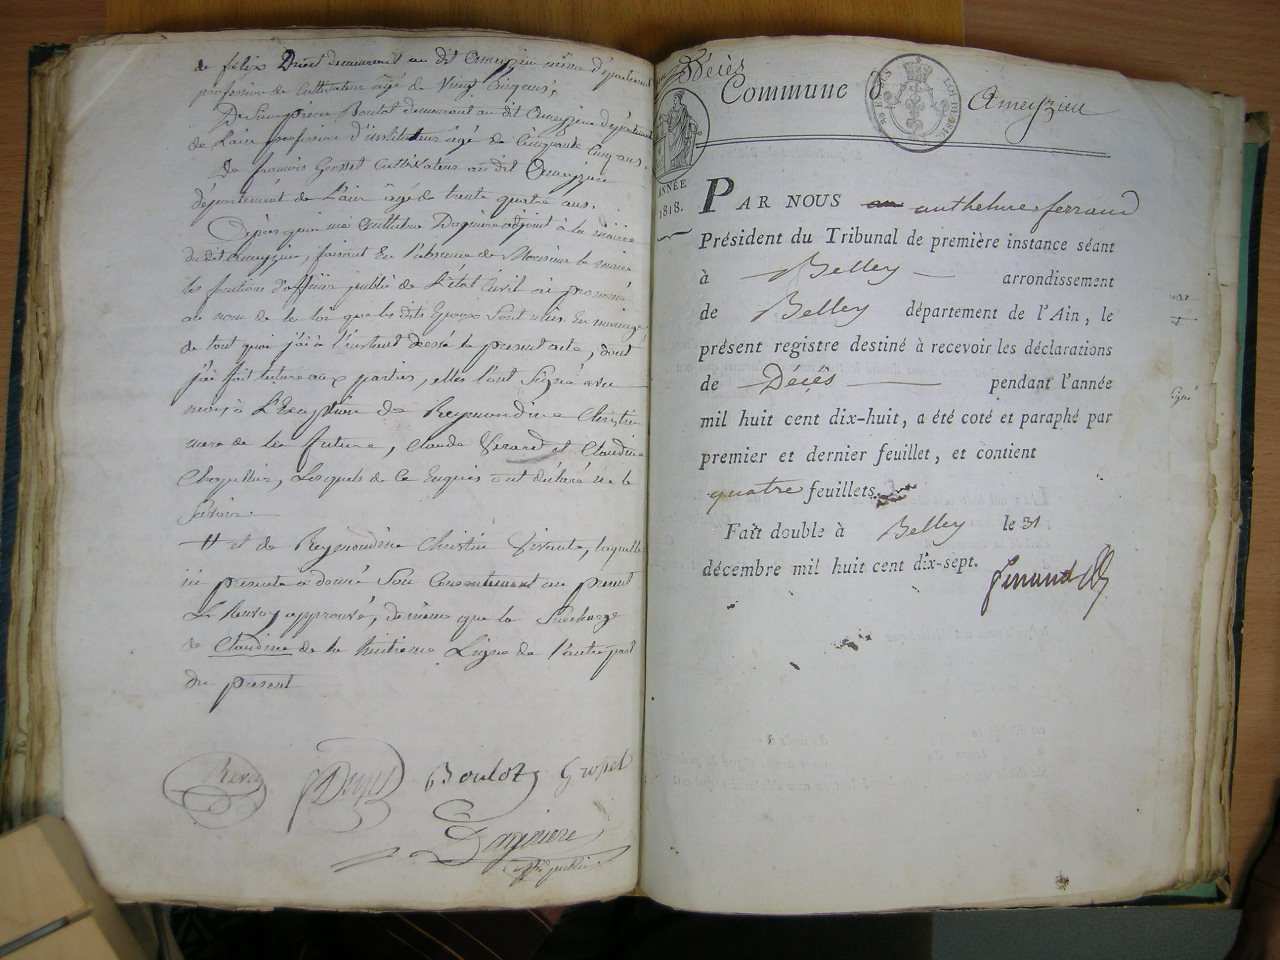 de felix Driet demeurant au dit Ameyzieu même département
profession de Cultivateur âgé de Vingt Cinq ans,
De Jean pierre Boulot demeurant au dit Ameyzieu département
de L'ain profession d'instituteur âgé de Cinquante Cinq ans.
De françois Cultivateur au dit Ameyzieu
département de L'ain âgé de trente quatre ans.
Après quoi moi Dagniere adjoint à la mairie
du dit Ameyzieu, faisant En l'absence de Monsieur le maire
les fonctions d'officier public de L'état Civil ai prononcé
au nom de la loi que les dits Epoux Sont unis En mariage
de tout quoi j'ai à l'instant dressé le présent acte, dont
j'ai fait lecture aux parties, elles l'ont Signé avec
nous, à L'Exception de Reymondine Christin
mere de la future, Claude et Claudine
Lesquels de Ce Enquis ont déclaré ne le
Savoir.
H et de Reymondine Christin laquelle
ici presente a donné Son Consentement au present
Le Renvoy approuvé, de même que la Surcharge
de Claudine de la huitieme Ligne de l'autre part
du present
Boulot
Dagniere
off. public
Décès
Commune d'Ameyzieu
ANNÉE
1818.
PAR NOUS anthelme ferrand
Président du Tribunal de première instance séant
à Belley arrondissement
de Belley département de l'Ain, le
présent registre destiné à recevoir les déclarations
de Décès pendant l'année
mil huit cent dix-huit, a été coté et paraphé par
premier et dernier feuillet, et contient
quatre feuillets.
Fait double à Belley le 31
décembre mil huit cent dix-sept.
ferrand